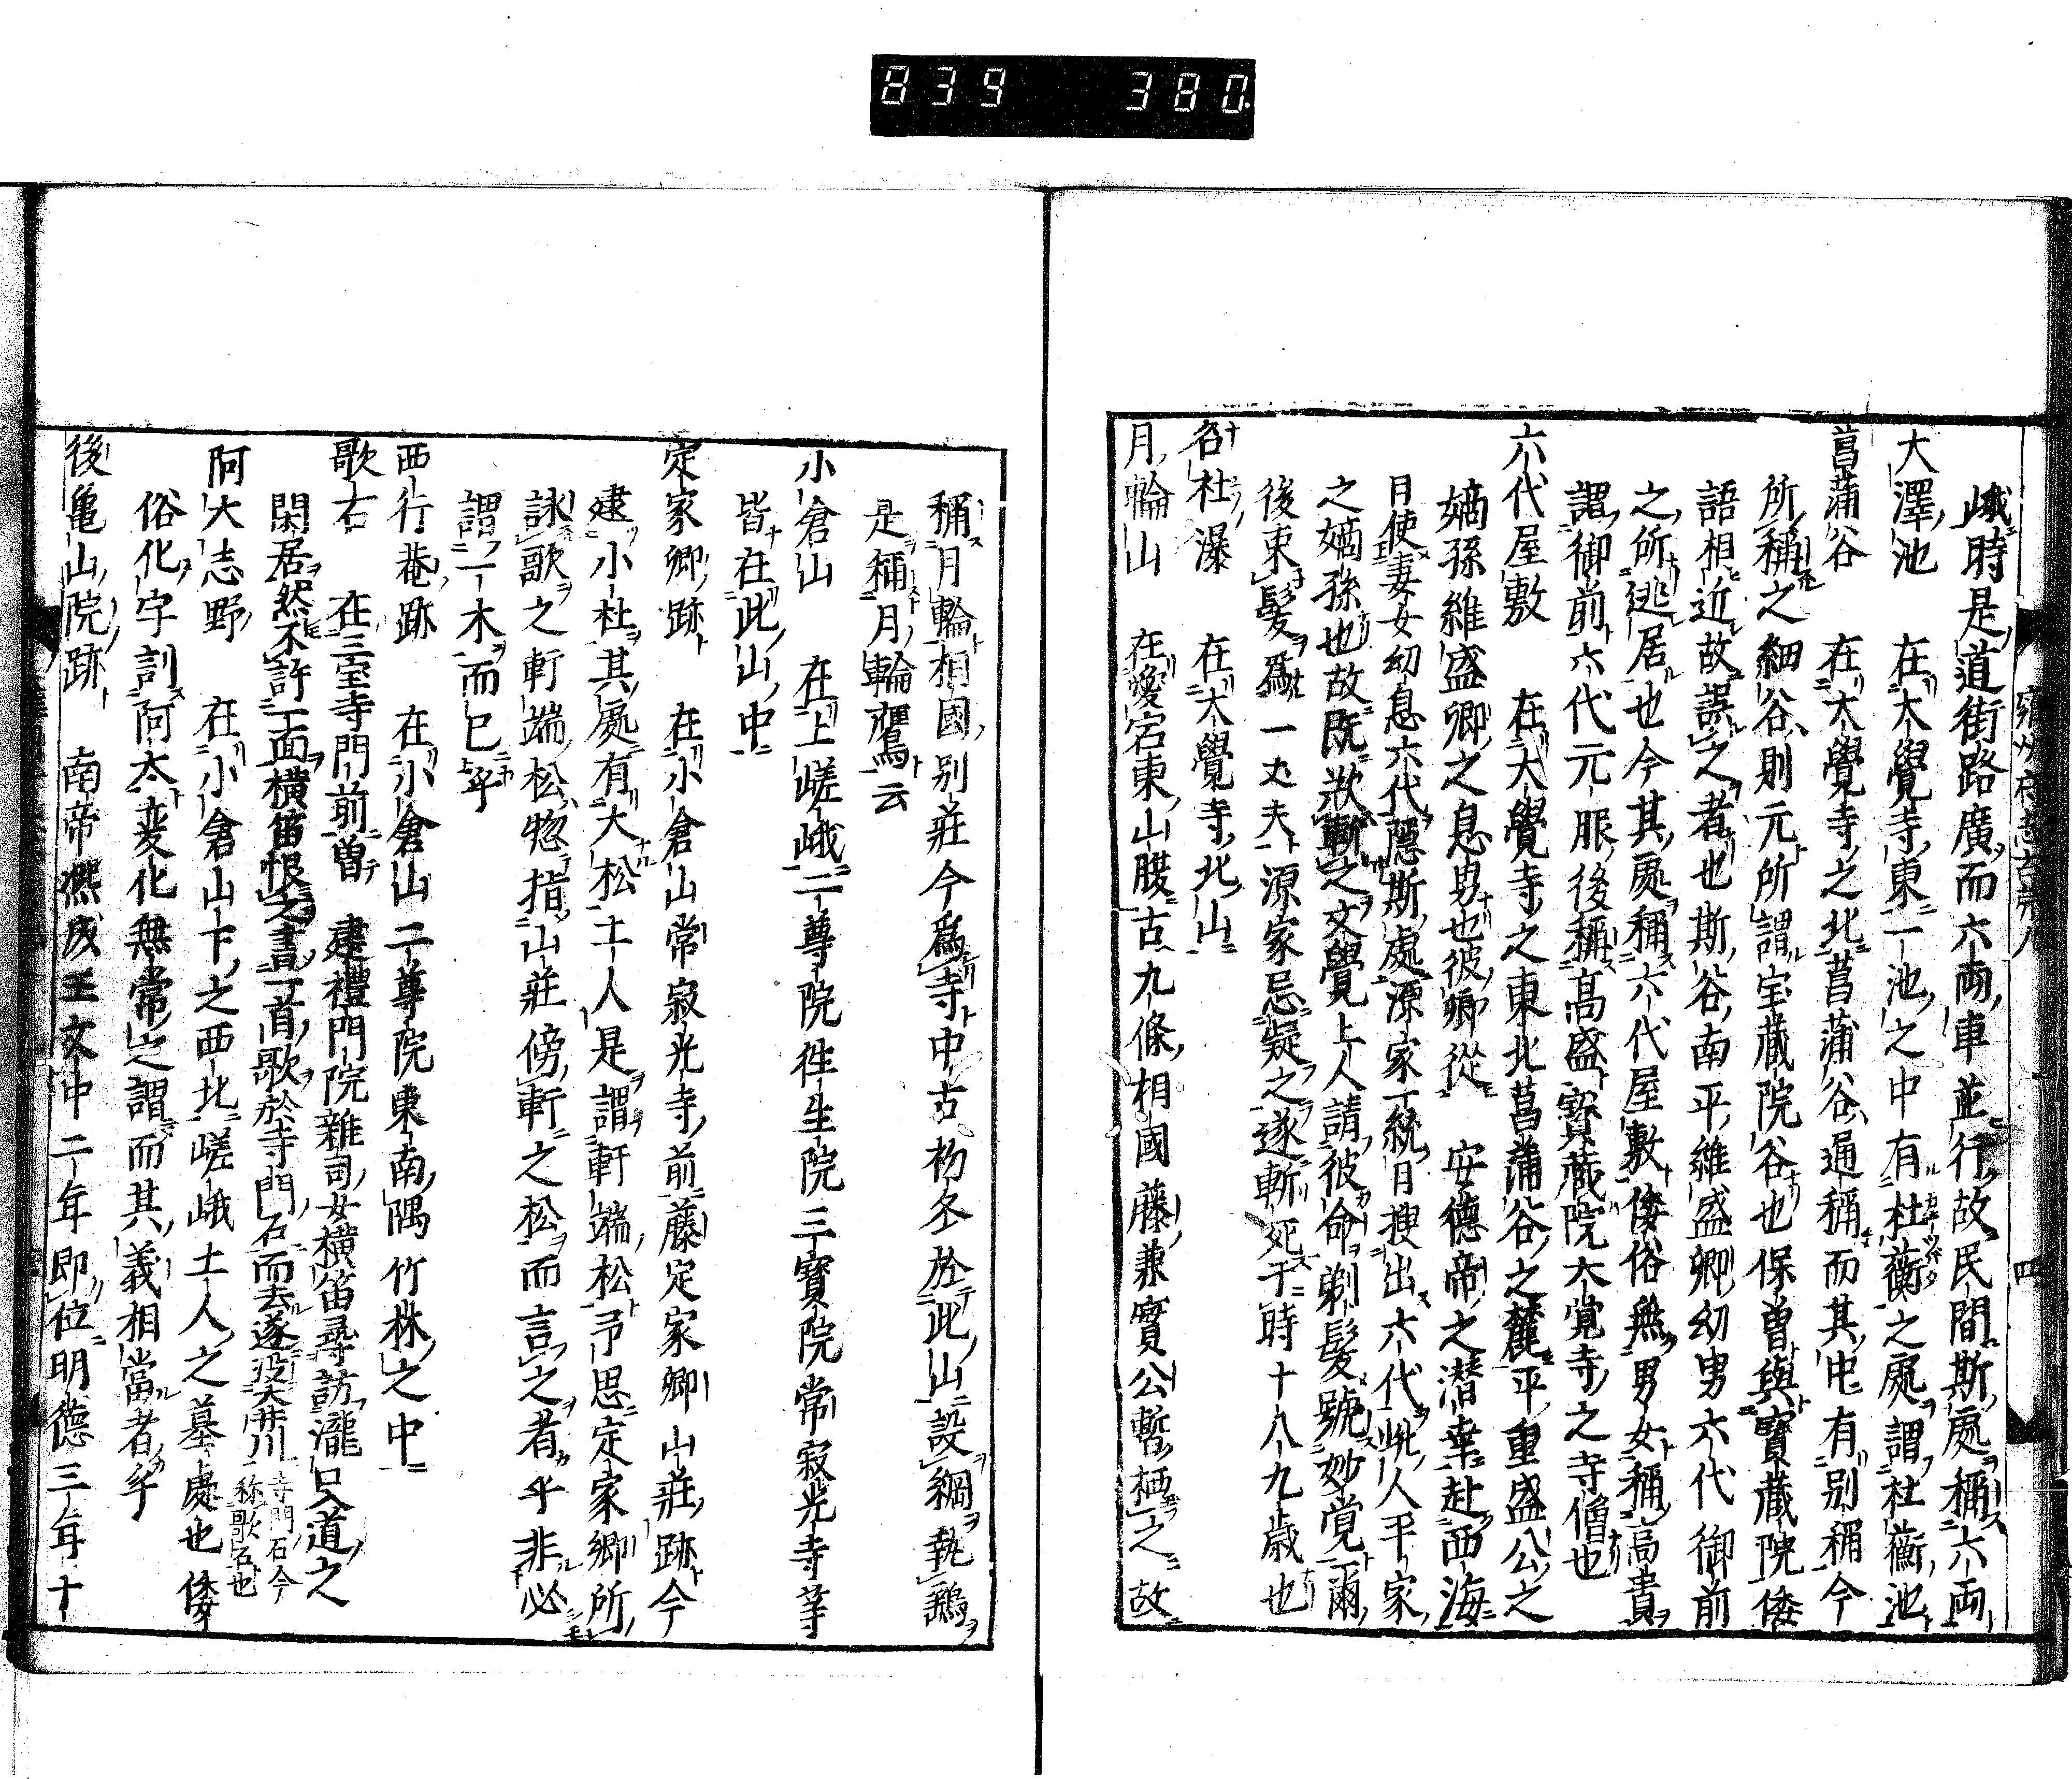 839 380
峨時是道街路廣而六両車並行故民間斯處稱六両
大澤池 在大覺寺東一池之中有杜蘅之處謂杜蘅池
菖蒲谷 在大覺寺之北菖蒲谷通稱而其中有別稱今
所稱之細谷則元所謂宝蔵院谷也保曽與寳蔵院倭
語相近故誤之者也斯谷南平維盛卿幼男六代御前
之所逃居也今其處稱六代屋敷倭俗無男女稱高貴
謂御前六代元服後稱高盛寳蔵院大覚寺之寺僧也
六代屋敷 在大覺寺之東北菖蒲谷之麓平重盛公之
嫡孫維盛卿之息男也彼卿從 安德帝之潜幸赴西海
日使妻女幼息六代隠斯處源家一統日搜出六代此人平家
之嫡孫也故既欲斬之文覺上人請彼命剃髪號妙覚爾
後束髪為一丈夫源家忌疑之遂斬死于時十八九歳也
名杜瀑 在大覺寺北山
月輪山 在愛宕東山腰古九條相國藤兼實公暫栖之故
稱月輪相國別莊今為寺中古初冬於此山設網執鵐
是稱月輪鷹云
小倉山 在上嵯峨二尊院徃生院三寳院常寂光寺等
皆在此山中
定家卿跡 在小倉山常寂光寺前藤定家卿山莊跡今
建小社其處有大松土人是謂軒端松予思定家卿所
詠歌之軒端松惣指山莊傍軒之松而言之者乎非必
謂一木而已乎
西行菴跡 在小倉山二尊院東南隅竹林之中
歌石 在三宝寺門前曽 建禮門院雜司女横笛尋訪瀧口入道之
閑居然不許一面横笛恨之書一首歌於寺門石而去遂没大井川 寺門石今
称歌石也
阿大志野 在小倉山下之西北嵯峨土人之墓處也倭
俗化字訓阿太変化無常之謂而其義相當者乎
後亀山院跡 南帝熈成王文中二年即位明德三年十